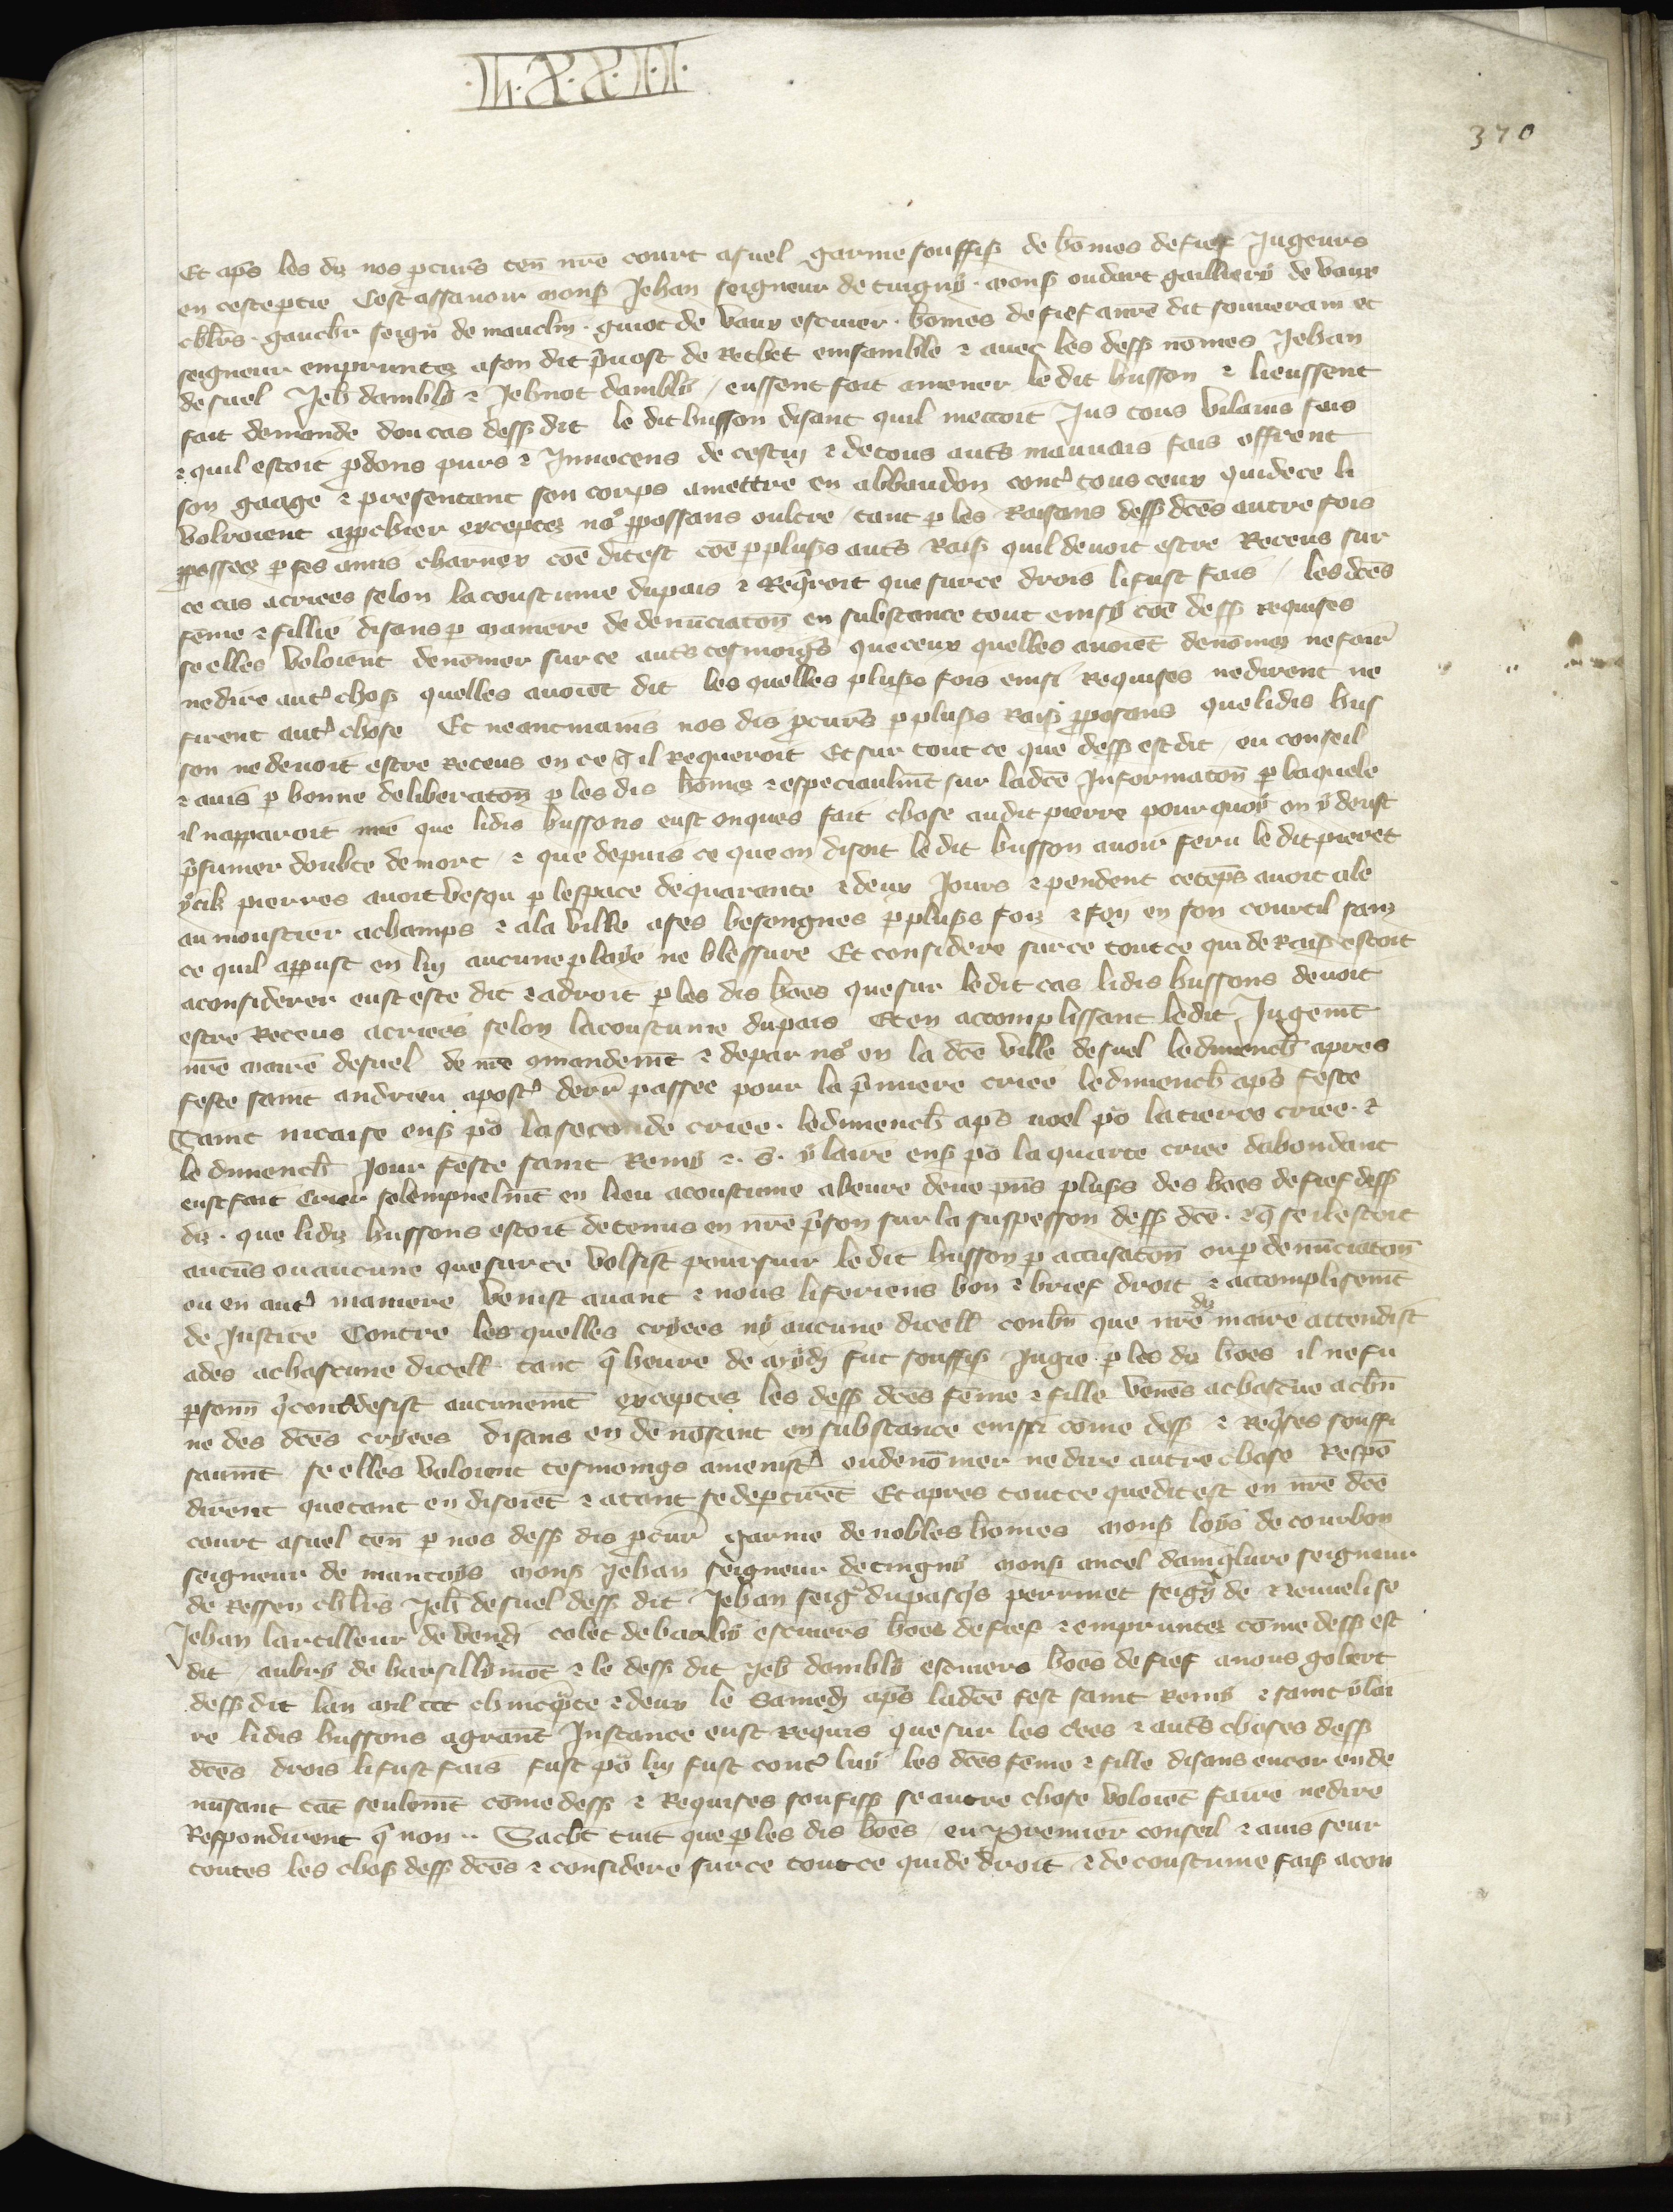 370
Et aps les dis nos pcurs ten nre court asuel garnie souffiss de homes de fief Jugeurs
en ceste ptie Cest assavoir mons Jehan seigneur de tuigny . mons oudart gailliers de vaux
chlrs . gauchr seign de mauclin . guiot de vaux escuier . homes de fief a nre dit souverain et
seigneur empruntez a son dit pvost de Rethet ensamble & avec les dess nomes Jehan
de suel Jeh dambly & Jehnot dambly / eussent fait amener le dit husson & li eussent
fait demande dou cas dess dit le dit husson disant quil mettoit Jus tous vilains fais
& quil estoit pdons purs & Innocens de cestuy & de tous auts mauvais fais offrent
son gaage & presentant son corps a mettre en abbandon cont tous ceux qui de ce li
volroient appchier exceptez nos pposans oultre / tant p les Raisons dess dces autre fois
pposees p ses amis charnex coe dit est coe p pluss auts Rais quil devoit estre Receus sur
ce cas a criees selon la coustume du pais & Reqroit que sur ce drois li fust fais / les dces
feme & fillie disans p maniere de denunciaton en substance tout einsy coe dess requises
se elles voloient denomer sur ce auts tesmoigs que ceux quelles avoiet denomez ne fair
ne dire aut chos quelles avoiet dit les quelles pluss fois einsi Requises ne dirent ne
firent aut chose Et neantmains nos dis pcurs p pluss Rais pposans que li dis hus
son ne devoit estre receus en ce q il Requeroit Et sur tout ce que dess est dit / eu conseil
& avis p bonne deliberaton p les dis homes & especiaulmt sur la dce Informaton p la quele
il napparoit mie que li dis hussons eust onques fait chose au dit pierre pour quoy on y deust
psumer doubte de mort / & que depuis ce que on disoit le dit husson avoir feru le dit pieret
ycils pierres avoit vesqu p lespace de quarante & deux Jours & pendent ce teps avoit ale
au moustier a champs & a la ville a ses besongnes p pluss fois & foy en son courtil sans
ce quil appust en luy aucune playe ne blessure Et considere sur ce tout ce qui de Rais estoit
a considerer eust este dit & a droit p les dis hoes que sur le dit cas li dis hussons devoit
estre Receus a criees selon la coustume du pais Et en accomplissant le dit Jugemt
nre maire de suel de nre 9mandemt & de par nos en la dce ville de suel le dimench apres
feste saint andrieu apost derr passee pour la pmiere criee le dimench aps feste
Saint nicaise ens po la seconde criee . le dimench aps noel po la tierce criee . &
le dimench Jour feste saint Remy & . s . ylaire ens po la quarte criee dabondant
eust fait crier solempnelmt en lieu acoustume a heure deue pns pluss des hoes de fief dess
dis . que li dis hussons estoit detenus en nre pson sur la suspesson dess dce . & q se il estoit
aucus ou aucune que sur ce volsist poursuir le dit husson p accusaton ou p denunciaton
ou en aut maniere venist avant & nous li feriens bon & brief droit & accomplisemt
de Justice Contre les quelles cryees ny aucune dicell conbn que nre dis maire attendist
ades a chascune dicell tant q heure de mydi fut souffiss Jugie p les dis hoes il ne fu
psonn q contdesist aucunemt exceptes les dess dces feme & fille venes a chascue a chn
ne des dces cryees disans en denosant en substance einssi come dess & Reqses souffi
saumt se elles voloient tesmoings amenist ou denomer ne dire autre chose Respo
dirent que tant en disoiet & atant se deptiret Et apres tout ce que dit est en nre dce
court a suel ten p nos dess dis pcur garnie de nobles homes mons loys de courbon
seigneur de mantoys mons Jehan seigneur de tingny mons ancel damglure seigneur
de Ressen chlrs Jeh de suel dess dit Jehan seig dupasqs perrinet seign de & renvelise
Jehan lartilleur de vendi colet de barby escuiers hoes de fief & empruntez come dess est
dit / aubry de harsillymot & le dess dit Jeh dambly escuiers hoes de fief a nous gobert
dess dit lan mil ccc & cinqte & deux le Samedi aps la dce fest saint Remy & saint ylai
re li dis hussons a grant Instance eust Requis que sur les cries & auts choses dess
dces drois li fust fais fust po luy fust cont luy les dces feme & fille disans encor en de
nusant tat seulomt come dess & Requises soufiss se autre chose voloiet faire ne dire
Respondirent q non .. Sachet tuit que p les dis hoes / eu premier conseil & avis seur
toutes les chos dess dces & considere sur ce tout ce qui de droit & de coustume fais a con